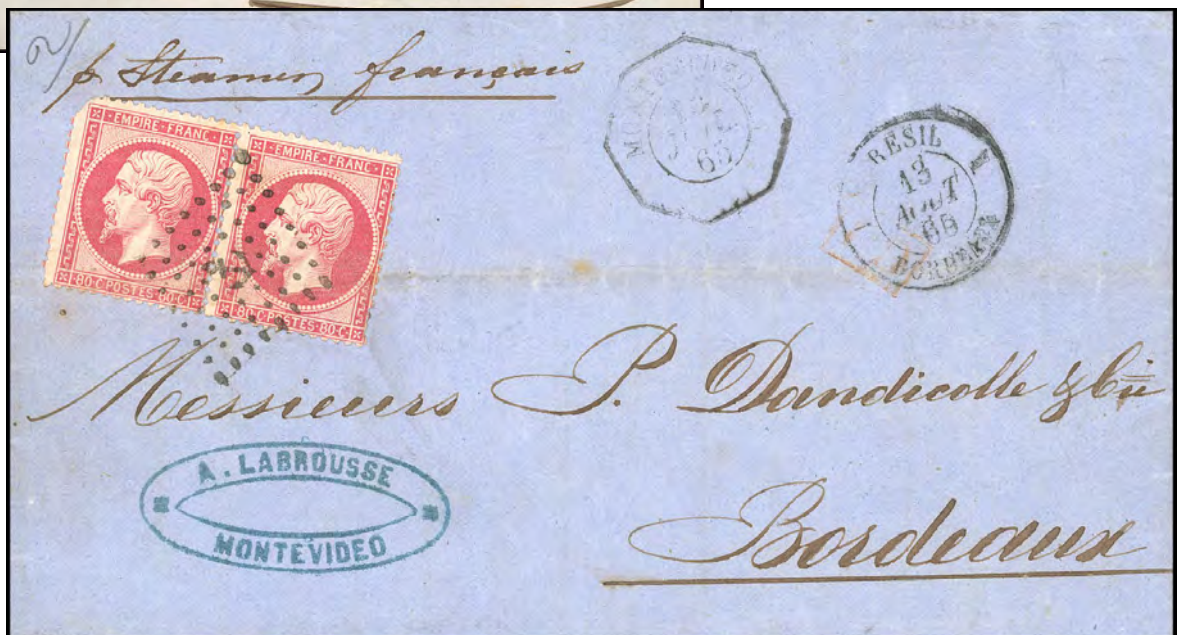 2/
p Steamer français
EMPIRE · FRANC
80 C POSTES 80 C
EMPIRE · FRANC
80 C POSTES 80 C
MONTEVIDEO
65
BRESIL
13
AOUT
65
Messieurs P. Dandicolle & Cie
Bordeaux
A. LABROUSSE
MONTEVIDEO